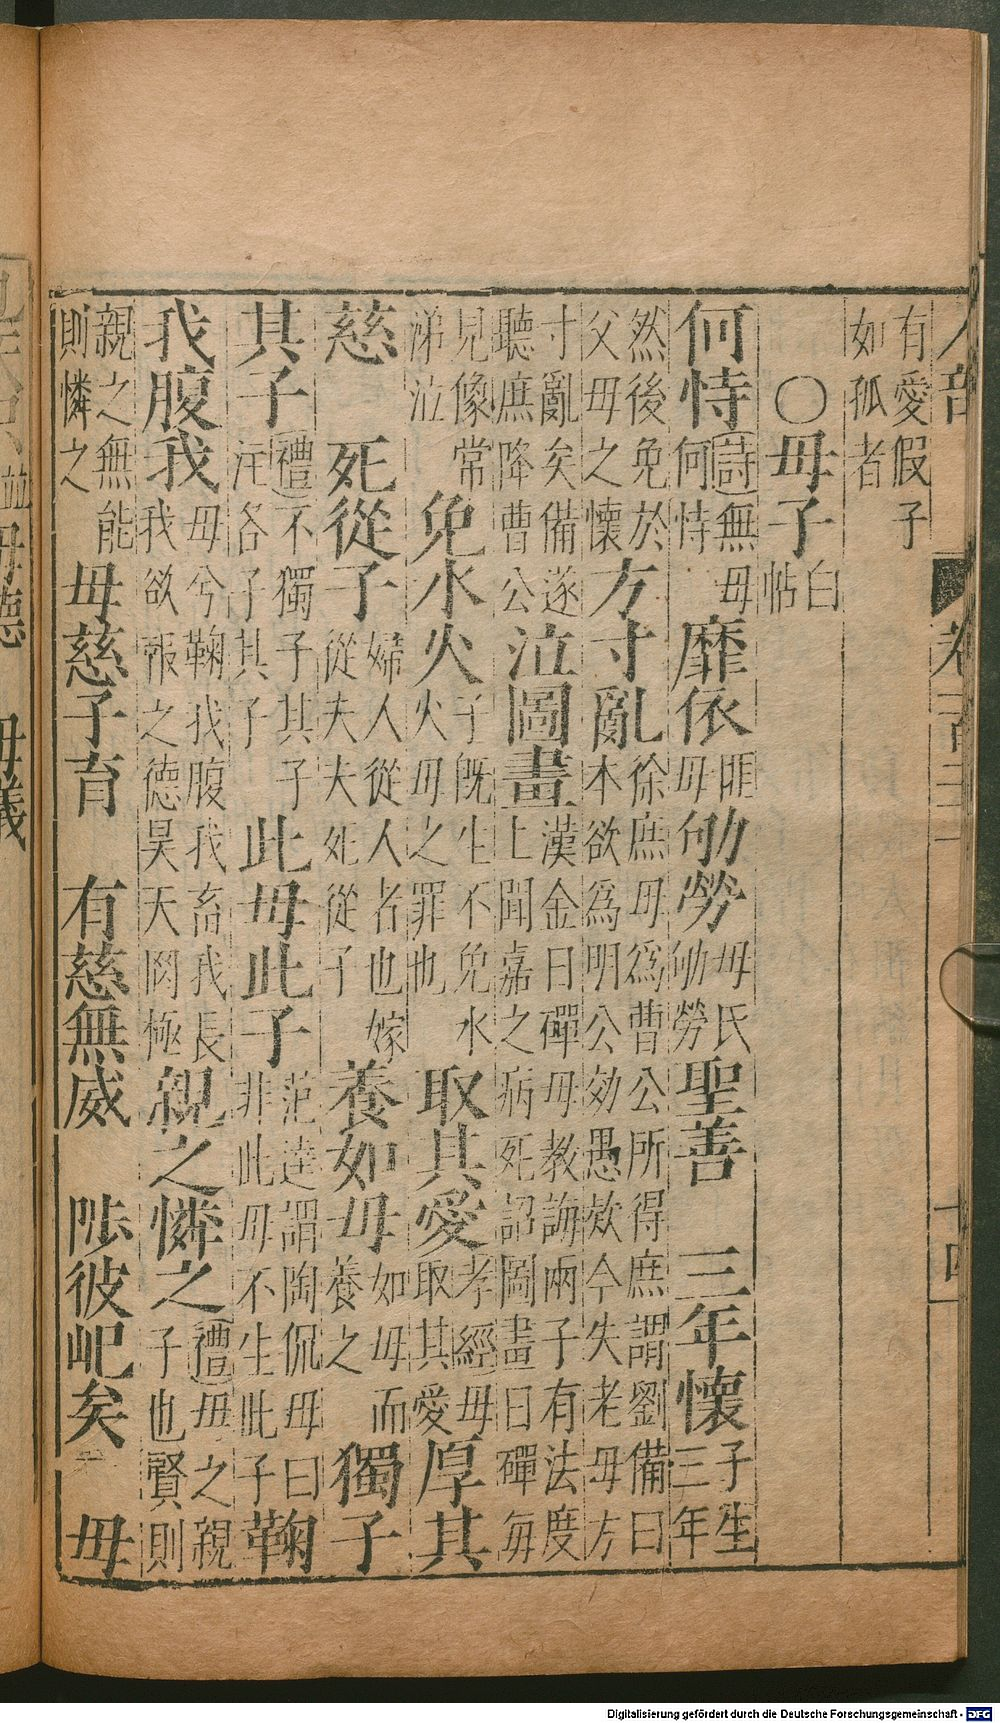 有愛假子
如孤者
○母子白
帖
何恃詩無母
何恃
靡依匪
母
劬勞母氏
劬勞
聖善 三年懷子生
三年
然後免於
父母之懷
方寸亂徐庶母為曹公所得庶謂劉備曰
本欲為明公効愚欵今失老母方
寸亂矣備遂
聽庶降曹公
泣圖畫漢金日磾母教誨兩子有法度
上聞嘉之病死詔圖畫日磾每
見像常
涕泣
免水火子既生不免水
火母之罪也
取其愛孝經母
取其愛
厚其
慈 死從子婦人從人者也嫁
從夫夫死從子
養如母如母而
養之
獨子
其子禮不獨子其子
注各子其子
此母此子范逵謂陶侃母曰
非此母不生此子
鞠
我腹我母兮鞠我腹我畜我長
我欲報之德昊天罔極
親之憐之禮母之親
子也賢則
親之無能
則憐之
母慈子育 有慈無威 陟彼屺矣 母
並母德 母儀
Digitalisierung gefördert durch die Deutsche Forschungsgemeinschaft - DFG